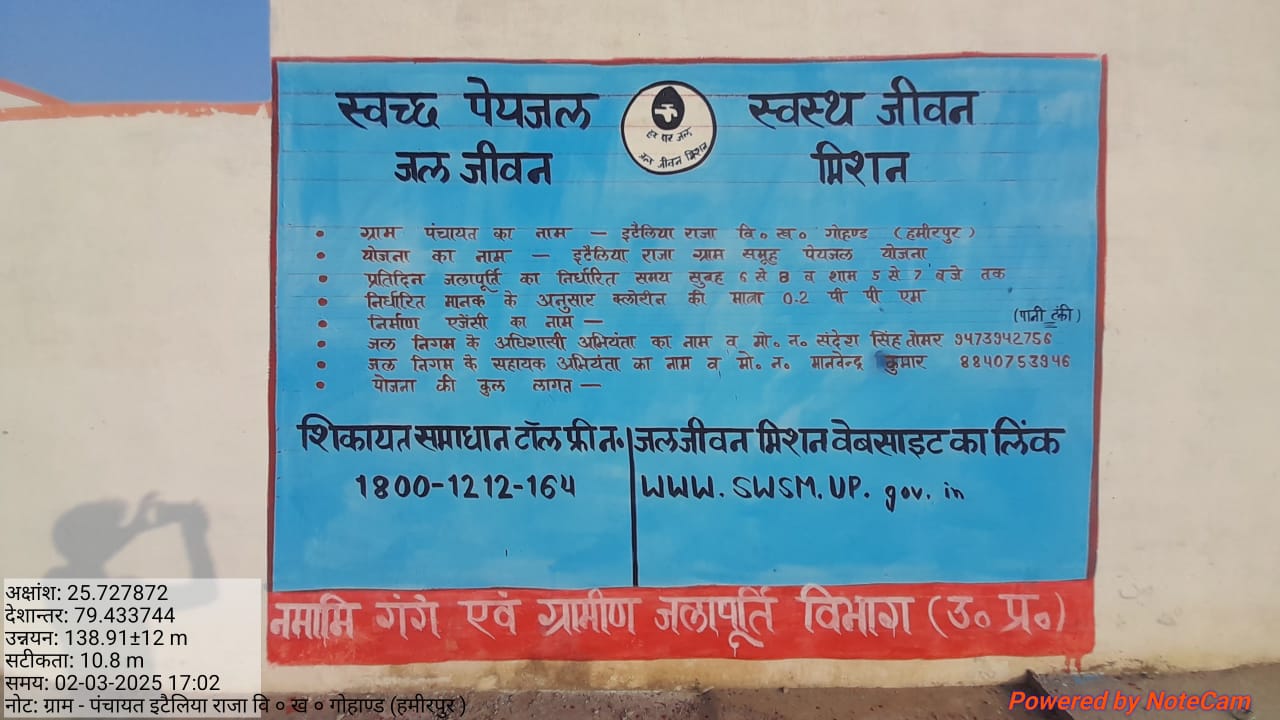 स्वच्छ पेयजल स्वस्थ जीवन
हर घर जल
जल जीवन मिशन
जल जीवन मिशन
• ग्राम पंचायत का नाम – इटैलिया राजा वि० ख० गोहण्ड (हमीरपुर)
• योजना का नाम – इटैलिया राजा ग्राम समूह पेयजल योजना
• प्रतिदिन जलापूर्ति का निर्धारित समय सुबह 6 से 8 व शाम 5 से 7 बजे तक
• निर्धारित मानक के अनुसार क्लोरीन की मात्रा 0.2 पी पी एम
• निर्माण एजेंसी का नाम – (पानी टंकी)
• जल निगम के अधिशासी अभियंता का नाम व मो० न० संदेश सिंह तोमर 9473942756
• जल निगम के सहायक अभियंता का नाम व मो० न० मानवेन्द्र कुमार 8840753946
• योजना की कुल लागत –
शिकायत समाधान टॉल फ्री न०
1800-1212-164
जल जीवन मिशन वेबसाइट का लिंक
WWW. SWSM. UP. gov. in
नमामि गंगे एवं ग्रामीण जलापूर्ति विभाग (उ० प्र०)
अक्षांश: 25.727872
देशान्तर: 79.433744
उन्नयन: 138.91±12 m
सटीकता: 10.8 m
समय: 02-03-2025 17:02
नोट: ग्राम - पंचायत इटैलिया राजा वि ० ख ० गोहाण्ड (हमीरपुर )
Powered by NoteCam